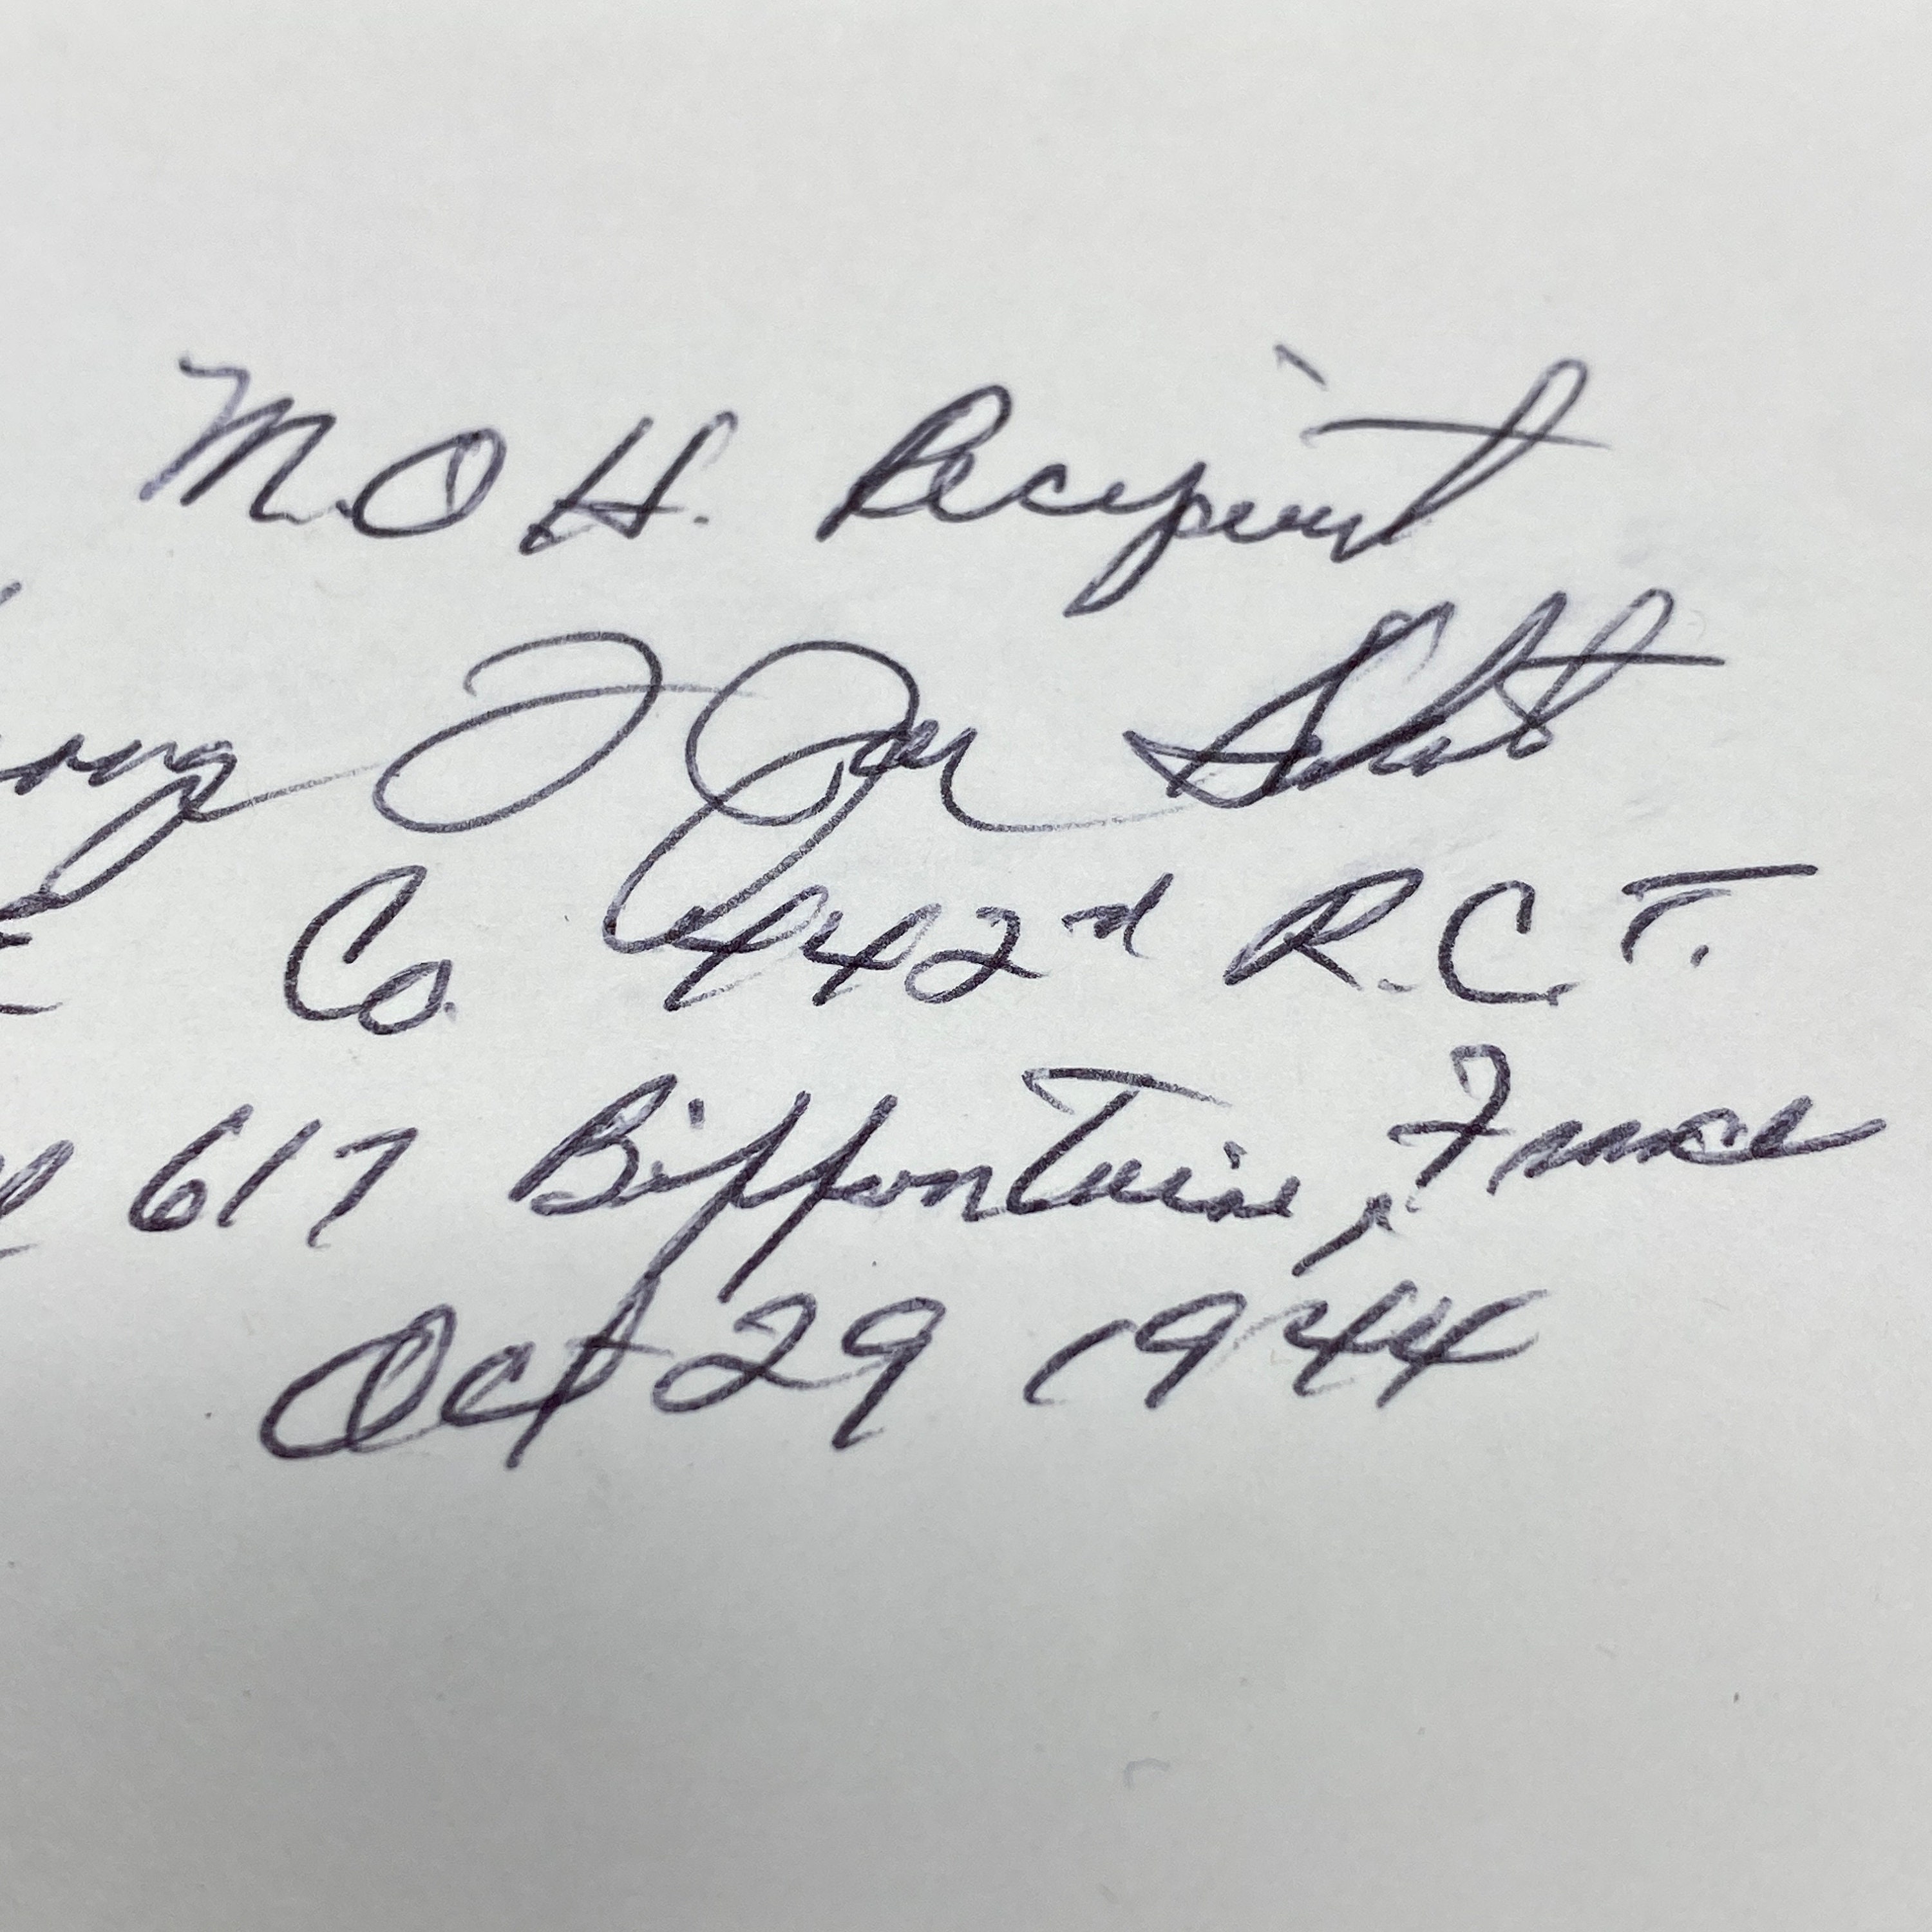 M.O H. Recipient
orge T Joe Sakato
E Co. 442nd R.C.T.
ll 617 Biffontaine, France
Oct 29 1944